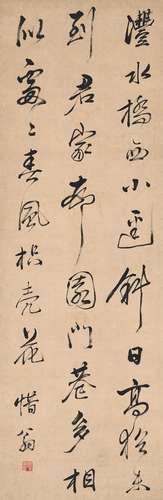 澧水橋西小逕斜日高猶未
到君家邨園門巷多相
似處々春風枳壳花 惜翁